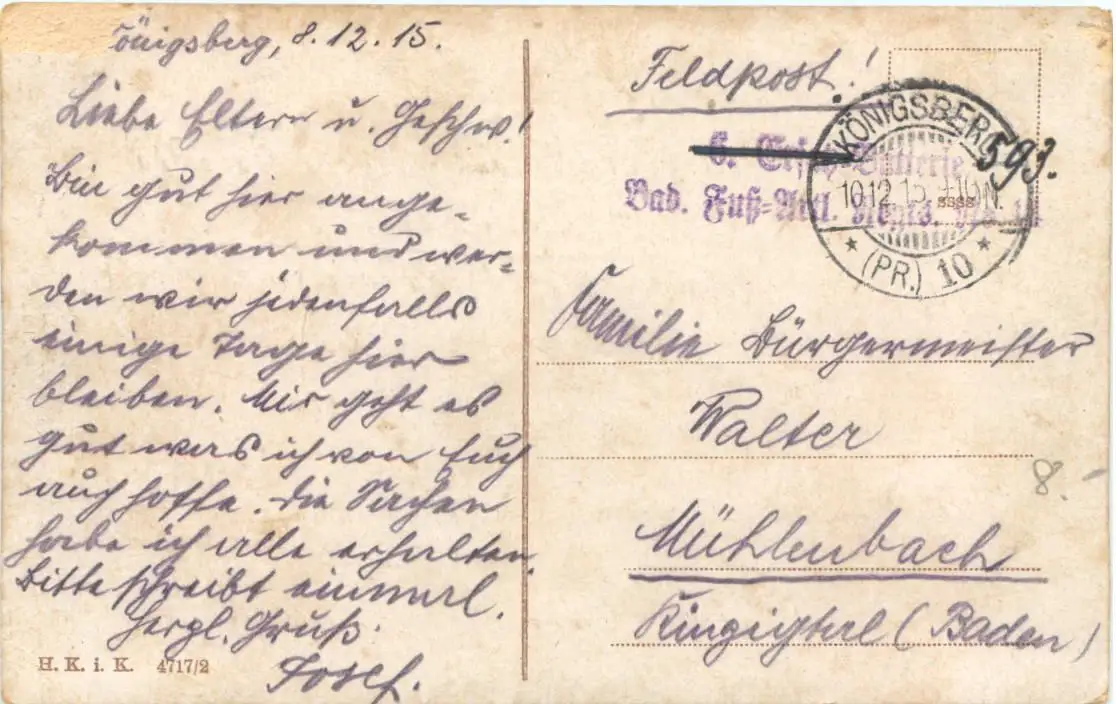 Königsberg, 8.12.15.
Liebe Eltern u. Geschw!
Bin gut hier ange-
kommen und wer-
den wir jedenfalls
einige Tage hier
bleiben. Mir geht es
gut was ich von Euch
auch hoffe. Die Sachen
habe ich alle erhalten.
Bitte schreibt einmal.
Herzl. Gruß
Josef.
H. K. i. K. 4717/2
Feldpost!
6. Batterie
593.
Bad. Fuß-Artl. Regts.
KÖNIGSBERG
10.12.15
(PR.) 10
Familie Bürgermeister
Walter
8.
Mühlenbach
Kinzigtal (Baden)